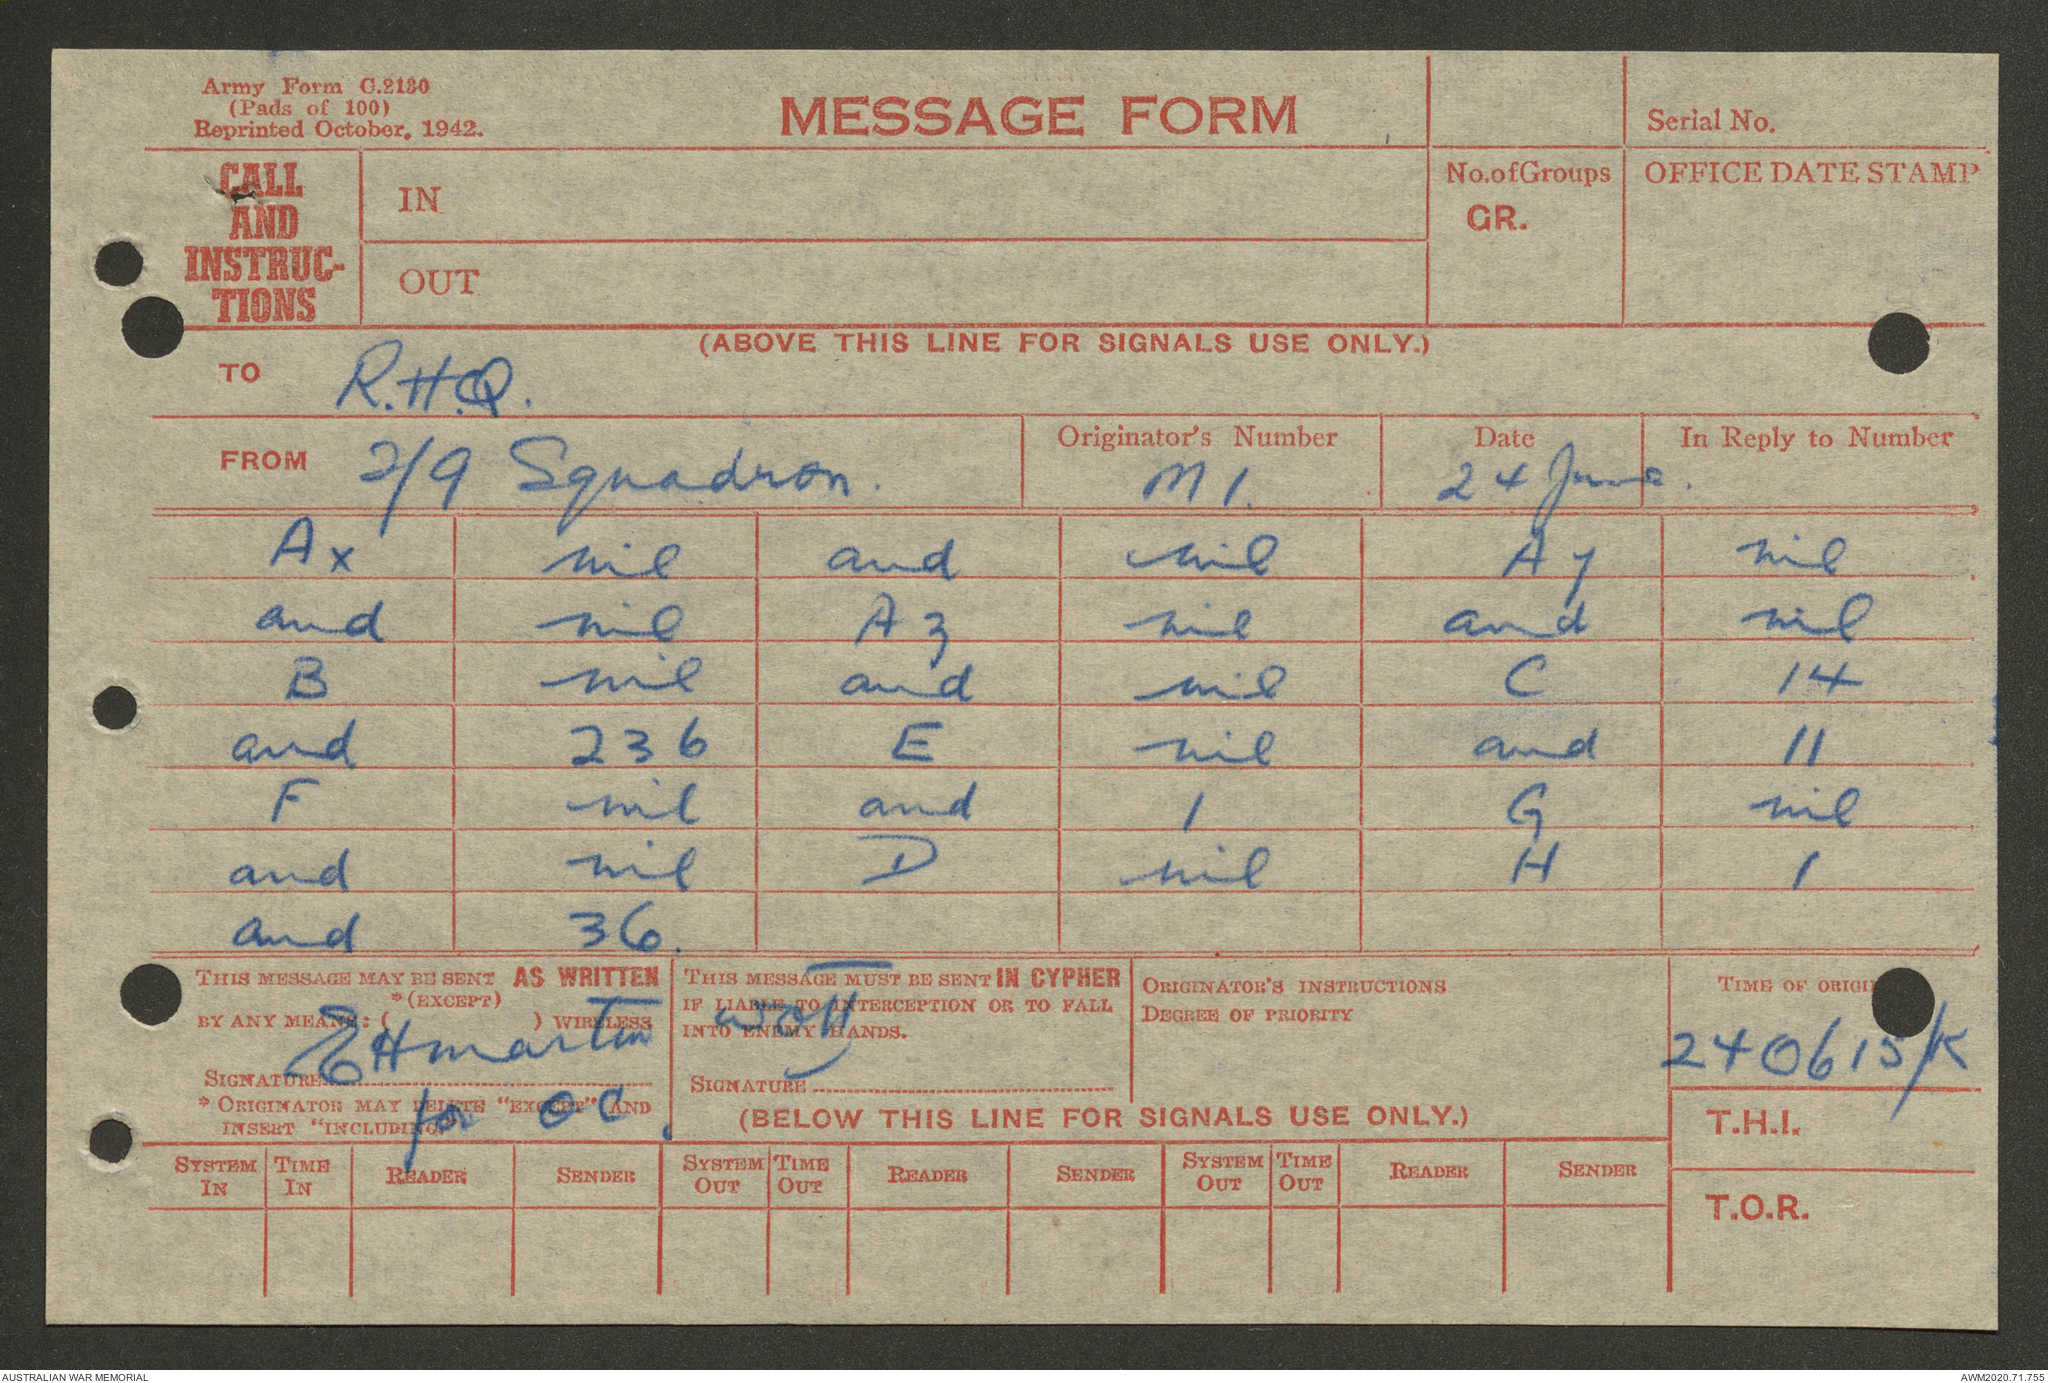 Army Form C.2130
(Pads of 100)
Reprinted October, 1942.
MESSAGE FORM
Serial No.
CALL
AND
INSTRUC-
TIONS
IN
OUT
No. of Groups
GR.
OFFICE DATE STAMP
(ABOVE THIS LINE FOR SIGNALS USE ONLY.)
TO R.H.Q.
FROM 2/9 Squadron.
Originator's Number
M 1.
Date
24 June.
In Reply to Number
Ax nil and nil Ay nil
and nil Az nil and nil
B nil and nil C 14
and 236 E nil and 11
F nil and 1 G nil
and nil D nil H 1
and 36.
THIS MESSAGE MAY BE SENT AS WRITTEN
*(EXCEPT)
BY ANY MEANS: ( ) WIRELESS
EHMartin
SIGNATURE
* ORIGINATOR MAY DELETE "EXCEPT" AND
INSERT "INCLUDING"
for OC.
THIS MESSAGE MUST BE SENT IN CYPHER
IF LIABLE TO INTERCEPTION OR TO FALL
INTO ENEMY HANDS.
SIGNATURE
ORIGINATOR'S INSTRUCTIONS
DEGREE OF PRIORITY
TIME OF ORIGI
240615/K
T.H.I.
T.O.R.
(BELOW THIS LINE FOR SIGNALS USE ONLY.)
SYSTEM IN TIME IN READER SENDER SYSTEM OUT TIME OUT READER SENDER SYSTEM OUT TIME OUT READER SENDER
AUSTRALIAN WAR MEMORIAL
AWM2020.71.755